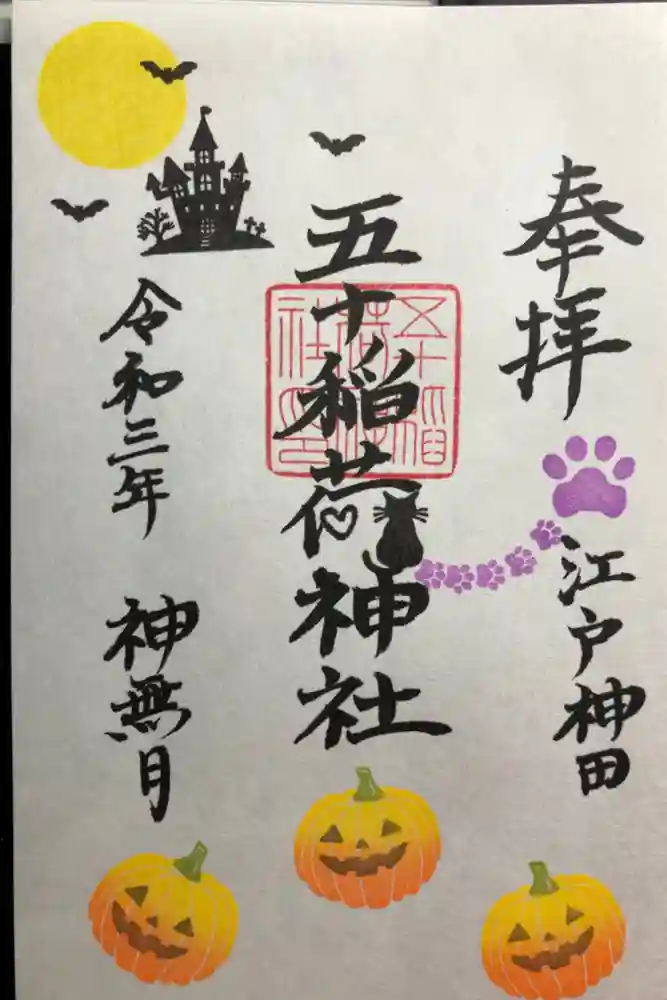 奉拝
江戸神田
五十稲荷神社
五十稲荷神社印
令和三年
神無月